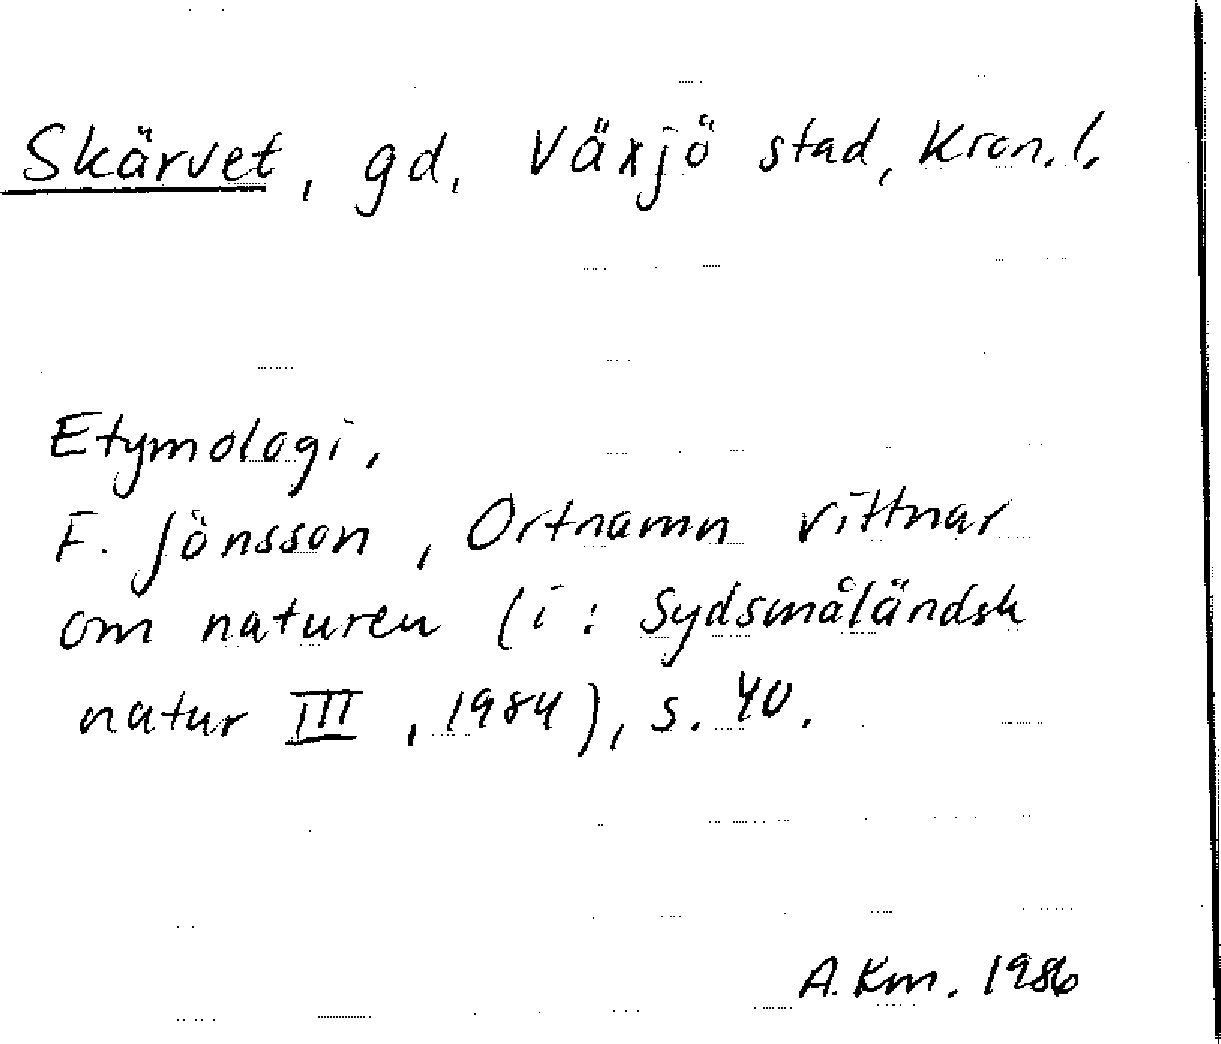 Skärvet, gd. Växjö stad, Kron. l.
Etymologi,
F. Jönsson, Ortnamn vittnar
om naturen (i: Sydsmåländsk
natur III, 1984), s. 40.
A. Km. 1986